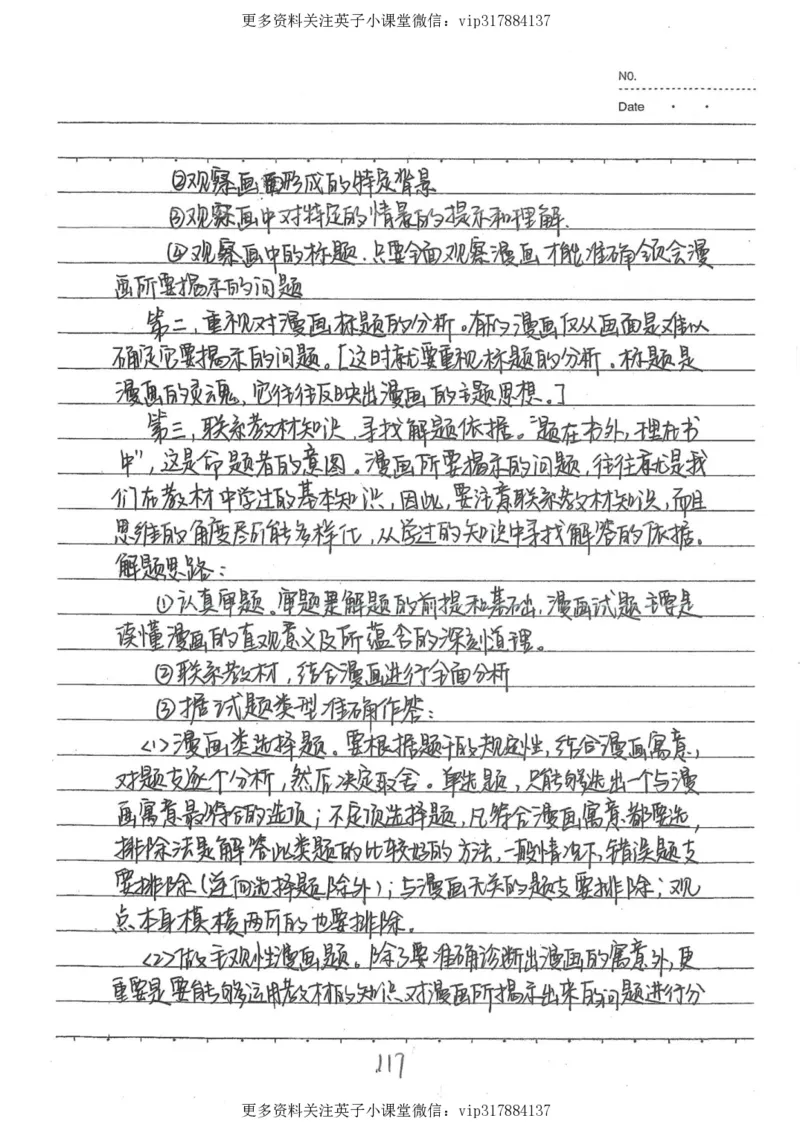 更多资料关注英子小课堂微信：vip317884137
NO.
Date
②观察画面形成的特定背景
③观察画中对特定的情景的提示和理解.
④观察画中的标题.只要全面观察漫画才能准确领会漫
画所要揭示的问题
第二,重视对漫画标题的分析。有的漫画仅从画面是难以
确定它要揭示的问题。[这时就要重视标题的分析。标题是
漫画的灵魂,它往往反映出漫画的主题思想。]
第三,联系教材知识,寻找解题依据。"题在书外,理在书
中",这是命题者的意图。漫画所要揭示的问题,往往就是我
们在教材中学过的基本知识,因此,要注意联系教材知识,而且
思维的角度尽所能多样化,从学过的知识中寻找解答的依据。
解题思路:
①认真审题。审题是解题的前提和基础,漫画试题主要是
读懂漫画的直观意义及所蕴含的深刻道理。
②联系教材,结合漫画进行全面分析
③据试题类型准确作答:
<1>漫画类选择题。要根据题干的规定性,结合漫画寓意,
对题支逐个分析,然后决定取舍。单选题,只能够选出一个与漫
画寓意最符合的选项;不定项选择题,凡符合漫画寓意都要选,
排除法是解答此类题的比较好的方法,一般情况下,错误题支
要排除(逆向选择题除外);与漫画无关的题支要排除;观
点本身模棱两可的也要排除。
<2>做主观性漫画题。除了要准确诊断出漫画的寓意外,更
重要是要能够运用教材的知识对漫画所揭示出来的问题进行分
117
更多资料关注英子小课堂微信：vip317884137